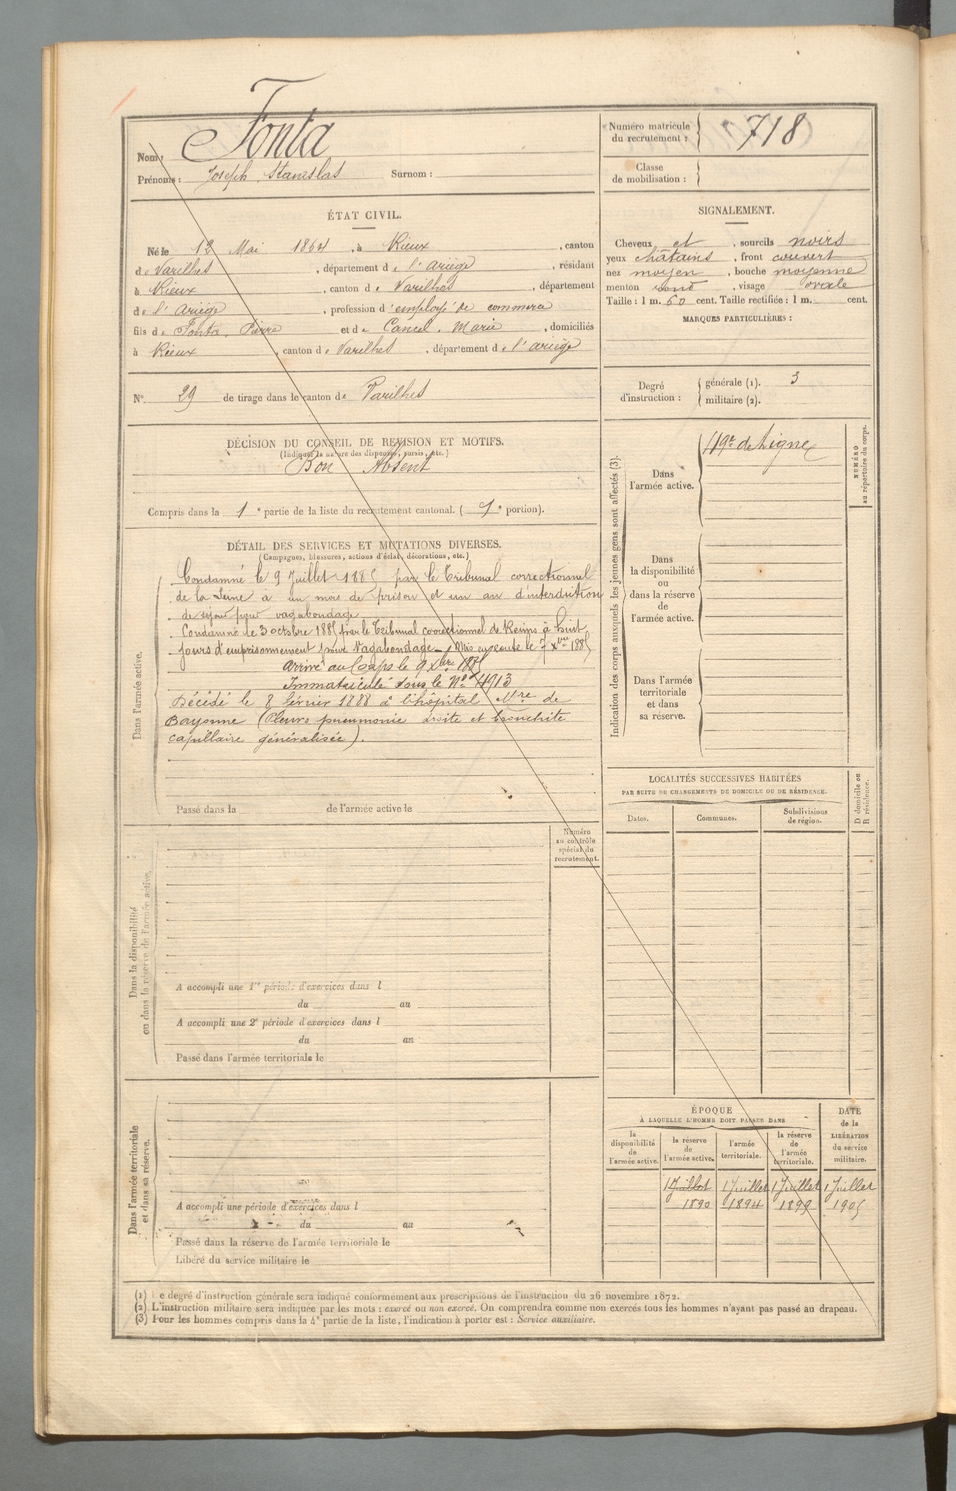 Nom : Fonta
Prénoms : Joseph Stanislas Surnom :
Numéro matricule du recrutement : 718
Classe de mobilisation :
ÉTAT CIVIL.
Né le 12 Mai 1864, à Rieux, canton
de Varilhes, département de l'Ariège, résidant
à Rieux, canton de Varilhes, département
de l'Ariège, profession d'employé de commerce
fils de Fonta, Pierre et de Cancel, Marie, domiciliés
à Rieux, canton de Varilhes, département de l'Ariège
N° 29 de tirage dans le canton de Varilhes
SIGNALEMENT.
Cheveux et, sourcils noirs
yeux châtains, front couvert
nez moyen, bouche moyenne
menton rond, visage ovale
Taille : 1 m. 60 cent. Taille rectifiée : 1 m. cent.
MARQUES PARTICULIÈRES :
Degré d'instruction : générale (1). 3
militaire (2).
DÉCISION DU CONSEIL DE REVISION ET MOTIFS.
(Indiquer la nature des dispenses, sursis, etc.)
Bon Absent
Compris dans la 1e partie de la liste du recrutement cantonal. (1e portion).
DÉTAIL DES SERVICES ET MUTATIONS DIVERSES.
(Campagnes, blessures, actions d'éclat, décorations, etc.)
Dans l'armée active.
Condamné le 9 Juillet 1885 par le Tribunal correctionnel
de la Seine à un mois de prison et un an d'interdiction
de séjour pour vagabondage
Condamné le 3 octobre 1885 par le Tribunal correctionnel de Reims à huit
jours d'emprisonnement pour Vagabondage. Mis en route le 7 Xbre 1885
Arrivé au Corps le 9 Xbre 1885
Immatriculé sous le N° 4913
Décédé le 8 février 1888 à l'hôpital Mre de
Bayonne (Pleuro pneumonie droite et bronchite
capillaire généralisée).
Passé dans la de l'armée active le
Indication des corps auxquels les jeunes gens sont affectés (3).
Dans l'armée active. 49e de Ligne
NUMÉRO au répertoire du corps.
Dans la disponibilité ou dans la réserve de l'armée active.
Dans l'armée territoriale et dans sa réserve.
LOCALITÉS SUCCESSIVES HABITÉES
PAR SUITE DE CHANGEMENTS DE DOMICILE OU DE RÉSIDENCE.
Dates. Communes. Subdivisions de région.
D domicile ou R résidence.
Numéro au contrôle spécial du recrutement.
Dans la disponibilité ou dans la réserve de l'armée active.
A accompli une 1re période d'exercices dans l
du au
A accompli une 2e période d'exercices dans l
du au
Passé dans l'armée territoriale le
Dans l'armée territoriale et dans sa réserve.
A accompli une période d'exercices dans l
du au
Passé dans la réserve de l'armée territoriale le
Libéré du service militaire le
ÉPOQUE
À LAQUELLE L'HOMME DOIT PASSER DANS
la disponibilité de l'armée active.
la réserve de l'armée active.
l'armée territoriale.
la réserve de l'armée territoriale.
DATE de la LIBÉRATION du service militaire.
1 Juillet 1 Juillet 1 Juillet 1 Juillet
1890 1894 1899 1905
(1) Le degré d'instruction générale sera indiqué conformément aux prescriptions de l'instruction du 26 novembre 1872.
(2) L'instruction militaire sera indiquée par les mots : exercé ou non exercé. On comprendra comme non exercés tous les hommes n'ayant pas passé au drapeau.
(3) Pour les hommes compris dans la 4e partie de la liste, l'indication à porter est : Service auxiliaire.